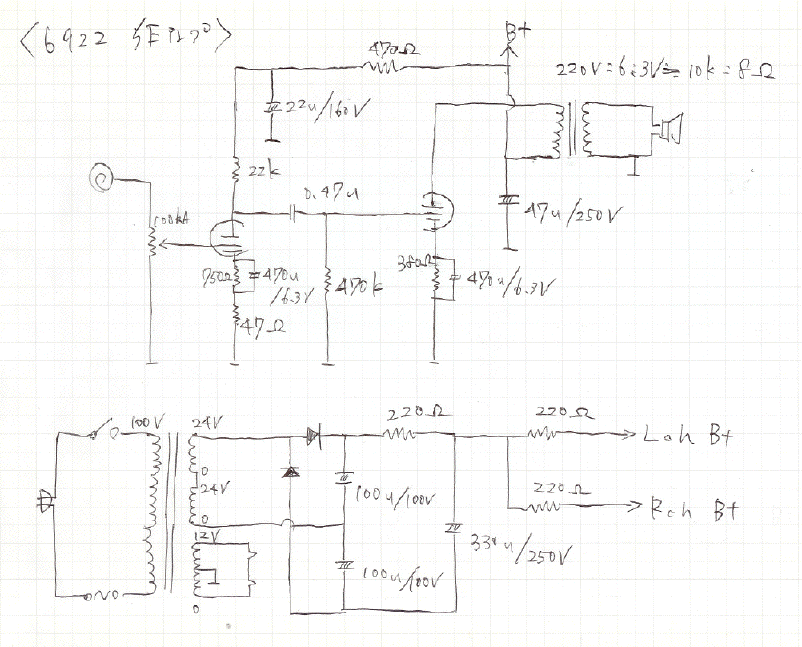 <6922 SEアンプ>
B+
470Ω
220V=6.3V≒10k=8Ω
22u/160V
22k
0.47u
100kA
47u/250V
750Ω
470u
/6.3V
470k
380Ω
470u
/6.3V
47Ω
100V
24V
220Ω
220Ω
Lch B+
0
24V
100u/100V
220Ω
Rch B+
0
12V
330u
/250V
100u/100V
0